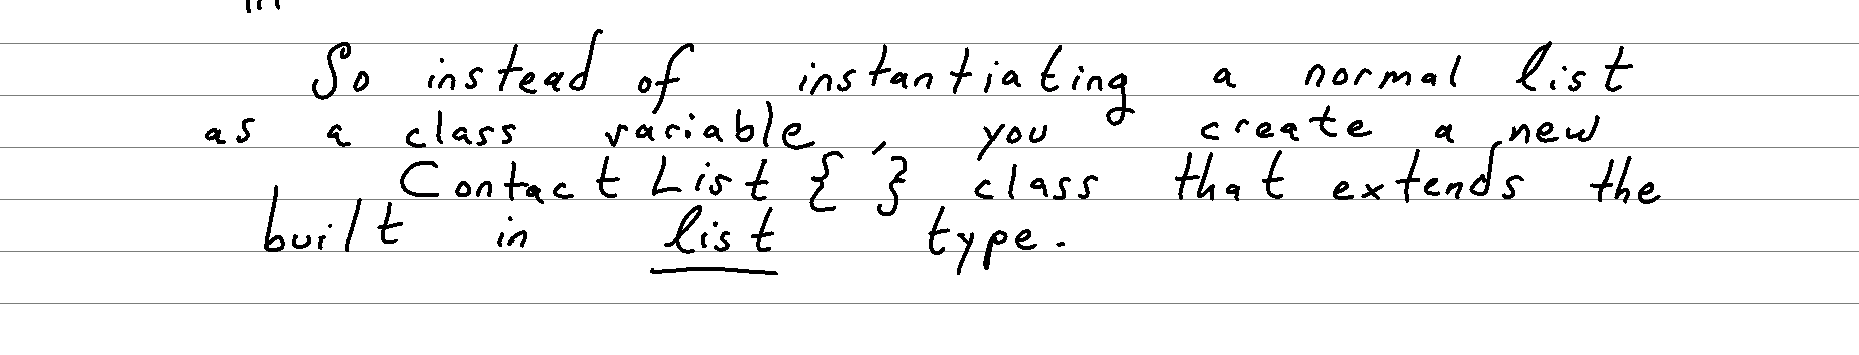 So instead of instantiating a normal list
as a class variable, you create a new
Contact List { } class that extends the
built in list type.